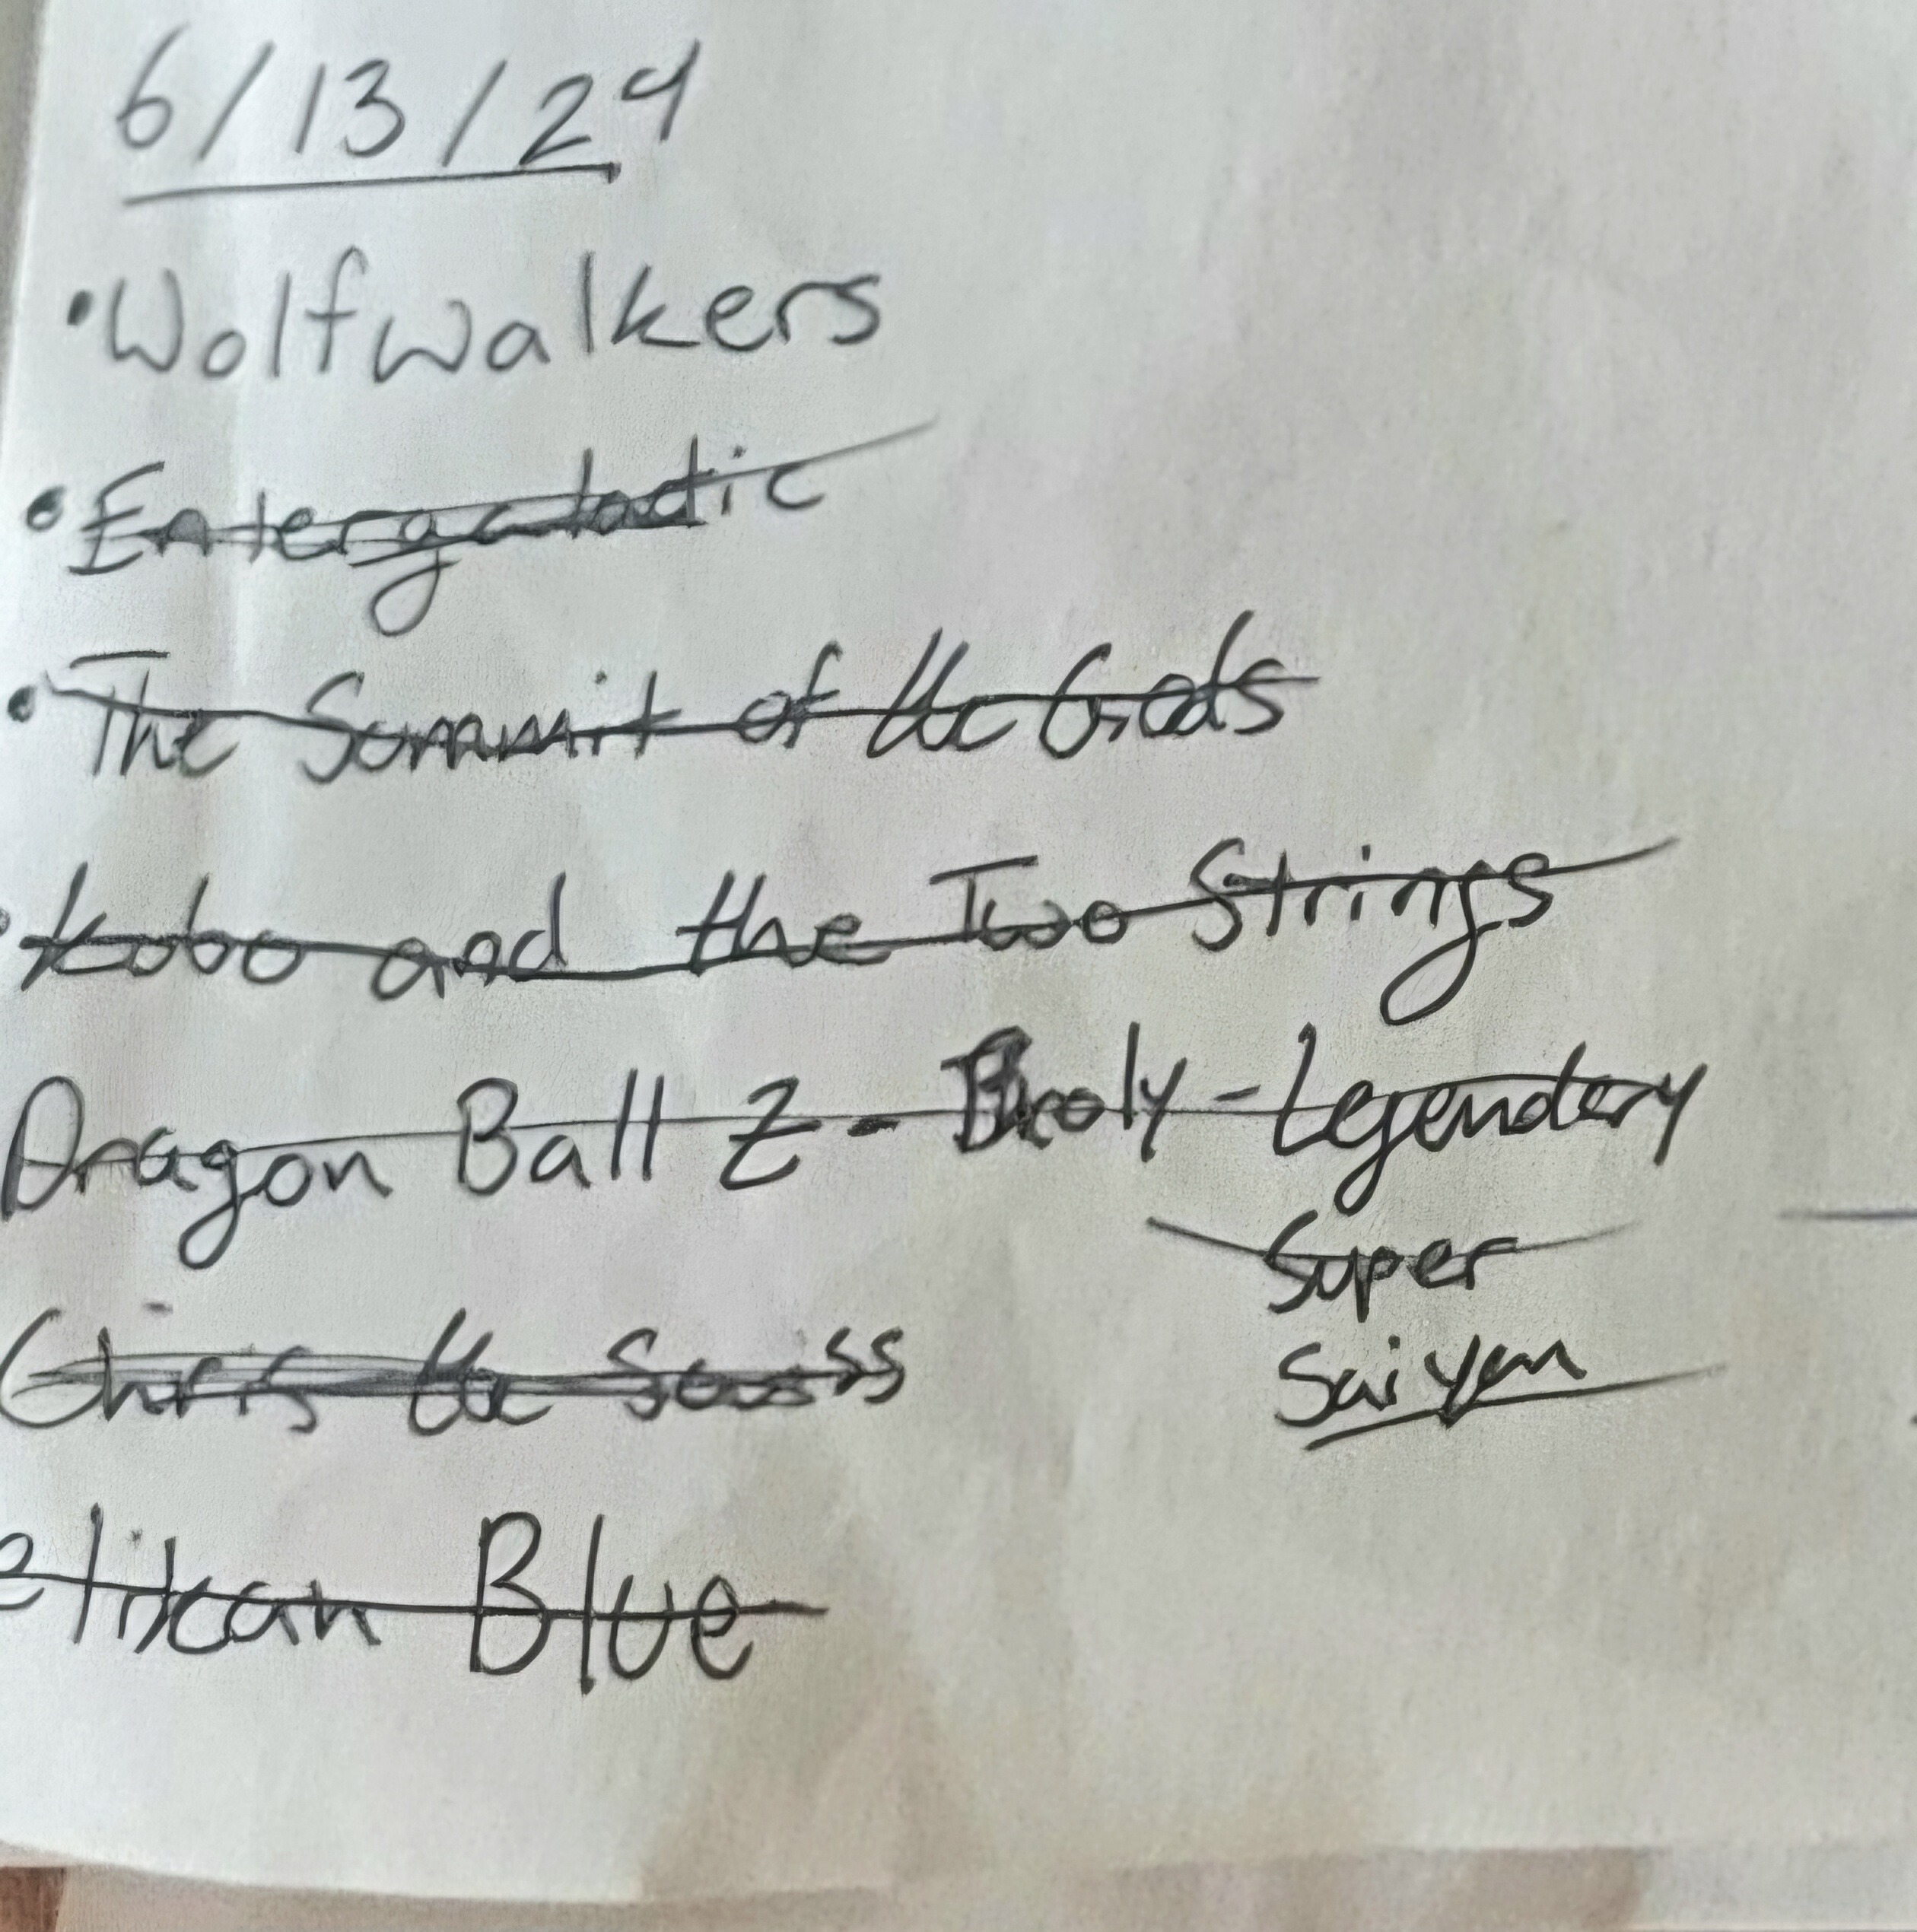 6/13/24
•Wolfwalkers
•Entergalactic
•The Summit of the Gods
•Kubo and the Two Strings
Dragon Ball Z - Broly - Legendary
Super
Saiyan
Chris the Swiss
elikan Blue